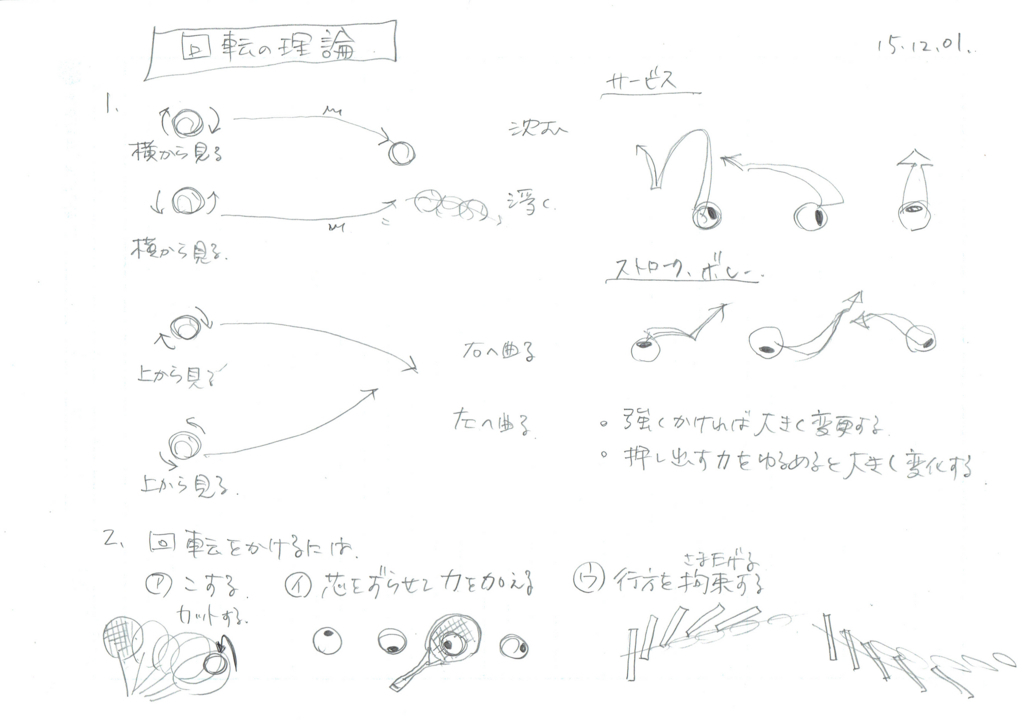 回転の理論
15.12.01.
1.
横から見る
沈む
横から見る.
浮く.
上から見る
右へ曲る
上から見る.
左へ曲る.
サービス
ストローク、ボレー.
。強くかければ大きく変更する.
。押し出す力をゆるめると大きく変化する
2、回転をかけるには.
㋐こする.
カットする.
㋑芯をずらせて力を加える
㋒行方を拘束する
さまたげる